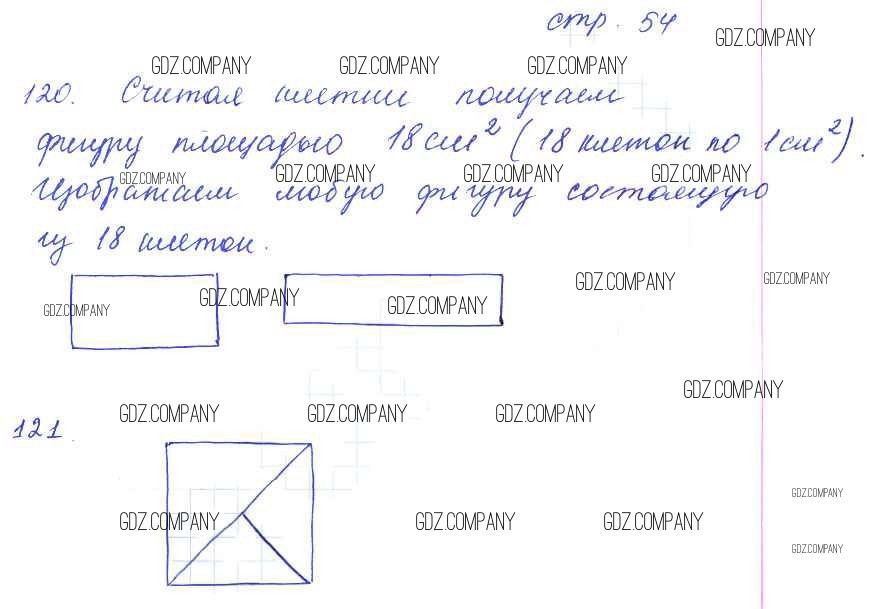 стр. 54
GDZ.COMPANY
GDZ.COMPANY GDZ.COMPANY GDZ.COMPANY
120. Считая клетки получаем
фигуру площадью 18 см² (18 клеток по 1 см²).
GDZ.COMPANY GDZ.COMPANY GDZ.COMPANY GDZ.COMPANY
Изображаем любую фигуру состоящую
из 18 клеток.
GDZ.COMPANY GDZ.COMPANY GDZ.COMPANY GDZ.COMPANY GDZ.COMPANY
GDZ.COMPANY
GDZ.COMPANY GDZ.COMPANY GDZ.COMPANY
121.
GDZ.COMPANY
GDZ.COMPANY GDZ.COMPANY GDZ.COMPANY
GDZ.COMPANY